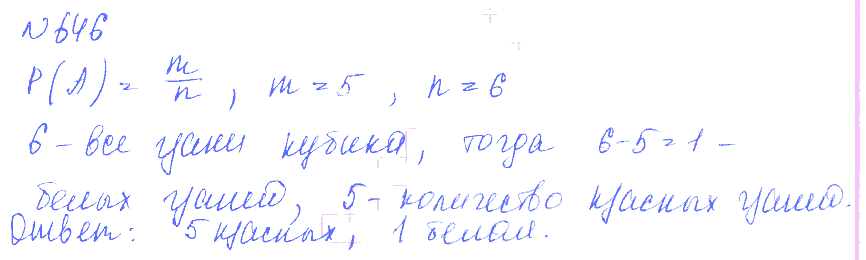 N 646
P(A) = m/n, m = 5, n = 6
6 – все грани кубика, тогда 6-5=1 –
белых граней, 5 – количество красных граней.
Ответ: 5 красных, 1 белая.